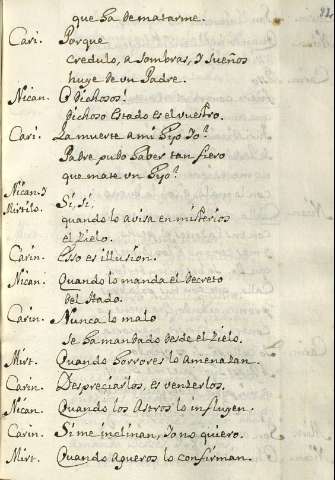 que ha de matarme.
92
Cari. Porque
credulo, a sombras, y sueños
huye de un Padre.
Nican. O dichosos!
dichoso Estado es el vuestro.
Cari. La muerte a mi hijo Yo?
Padre pudo haber tan fiero
que mate un hijo?
Nican. y
Mirtilo. Si, si,
quando lo avisa en misterios
el Zielo.
Carin. Esso es illusion.
Nican. Quando lo manda el decreto
del Hado.
Carin. Nunca lo malo
se ha mandado desde el Zielo.
Mirt. Quando horrores lo amenazan.
Carin. Despreciarlos, es venzerlos.
Nican. Quando los Astros lo influyen.
Carin. Si me inclinan, Yo no quiero.
Mirt. Quando agueros lo confirman.